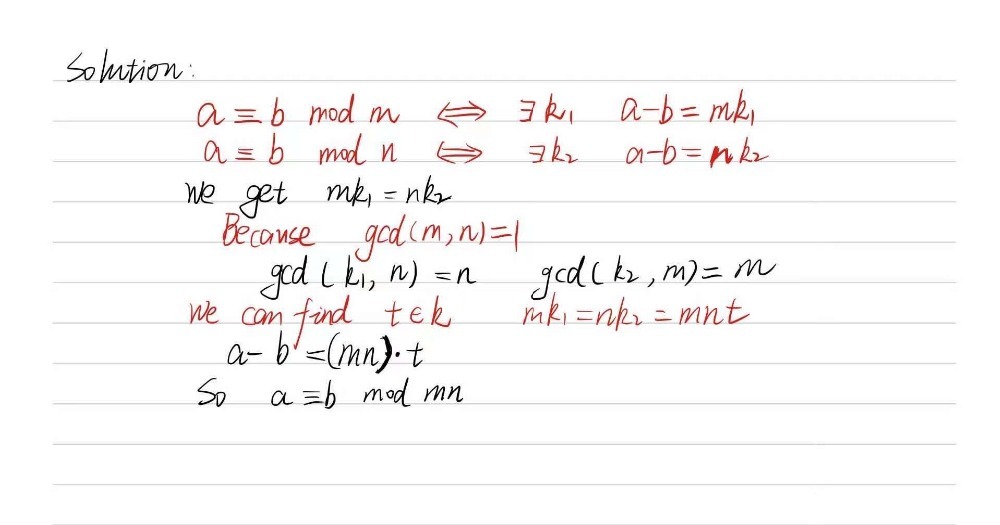 Solution:
a ≡ b mod m ⇔ ∃k₁ a-b = mk₁
a ≡ b mod n ⇔ ∃k₂ a-b = nk₂
We get mk₁ = nk₂
Because gcd(m,n)=1
gcd(k₁, n) = n gcd(k₂, m) = m
We can find t∈k mk₁ = nk₂ = mnt
a-b = (mn)·t
So a ≡ b mod mn